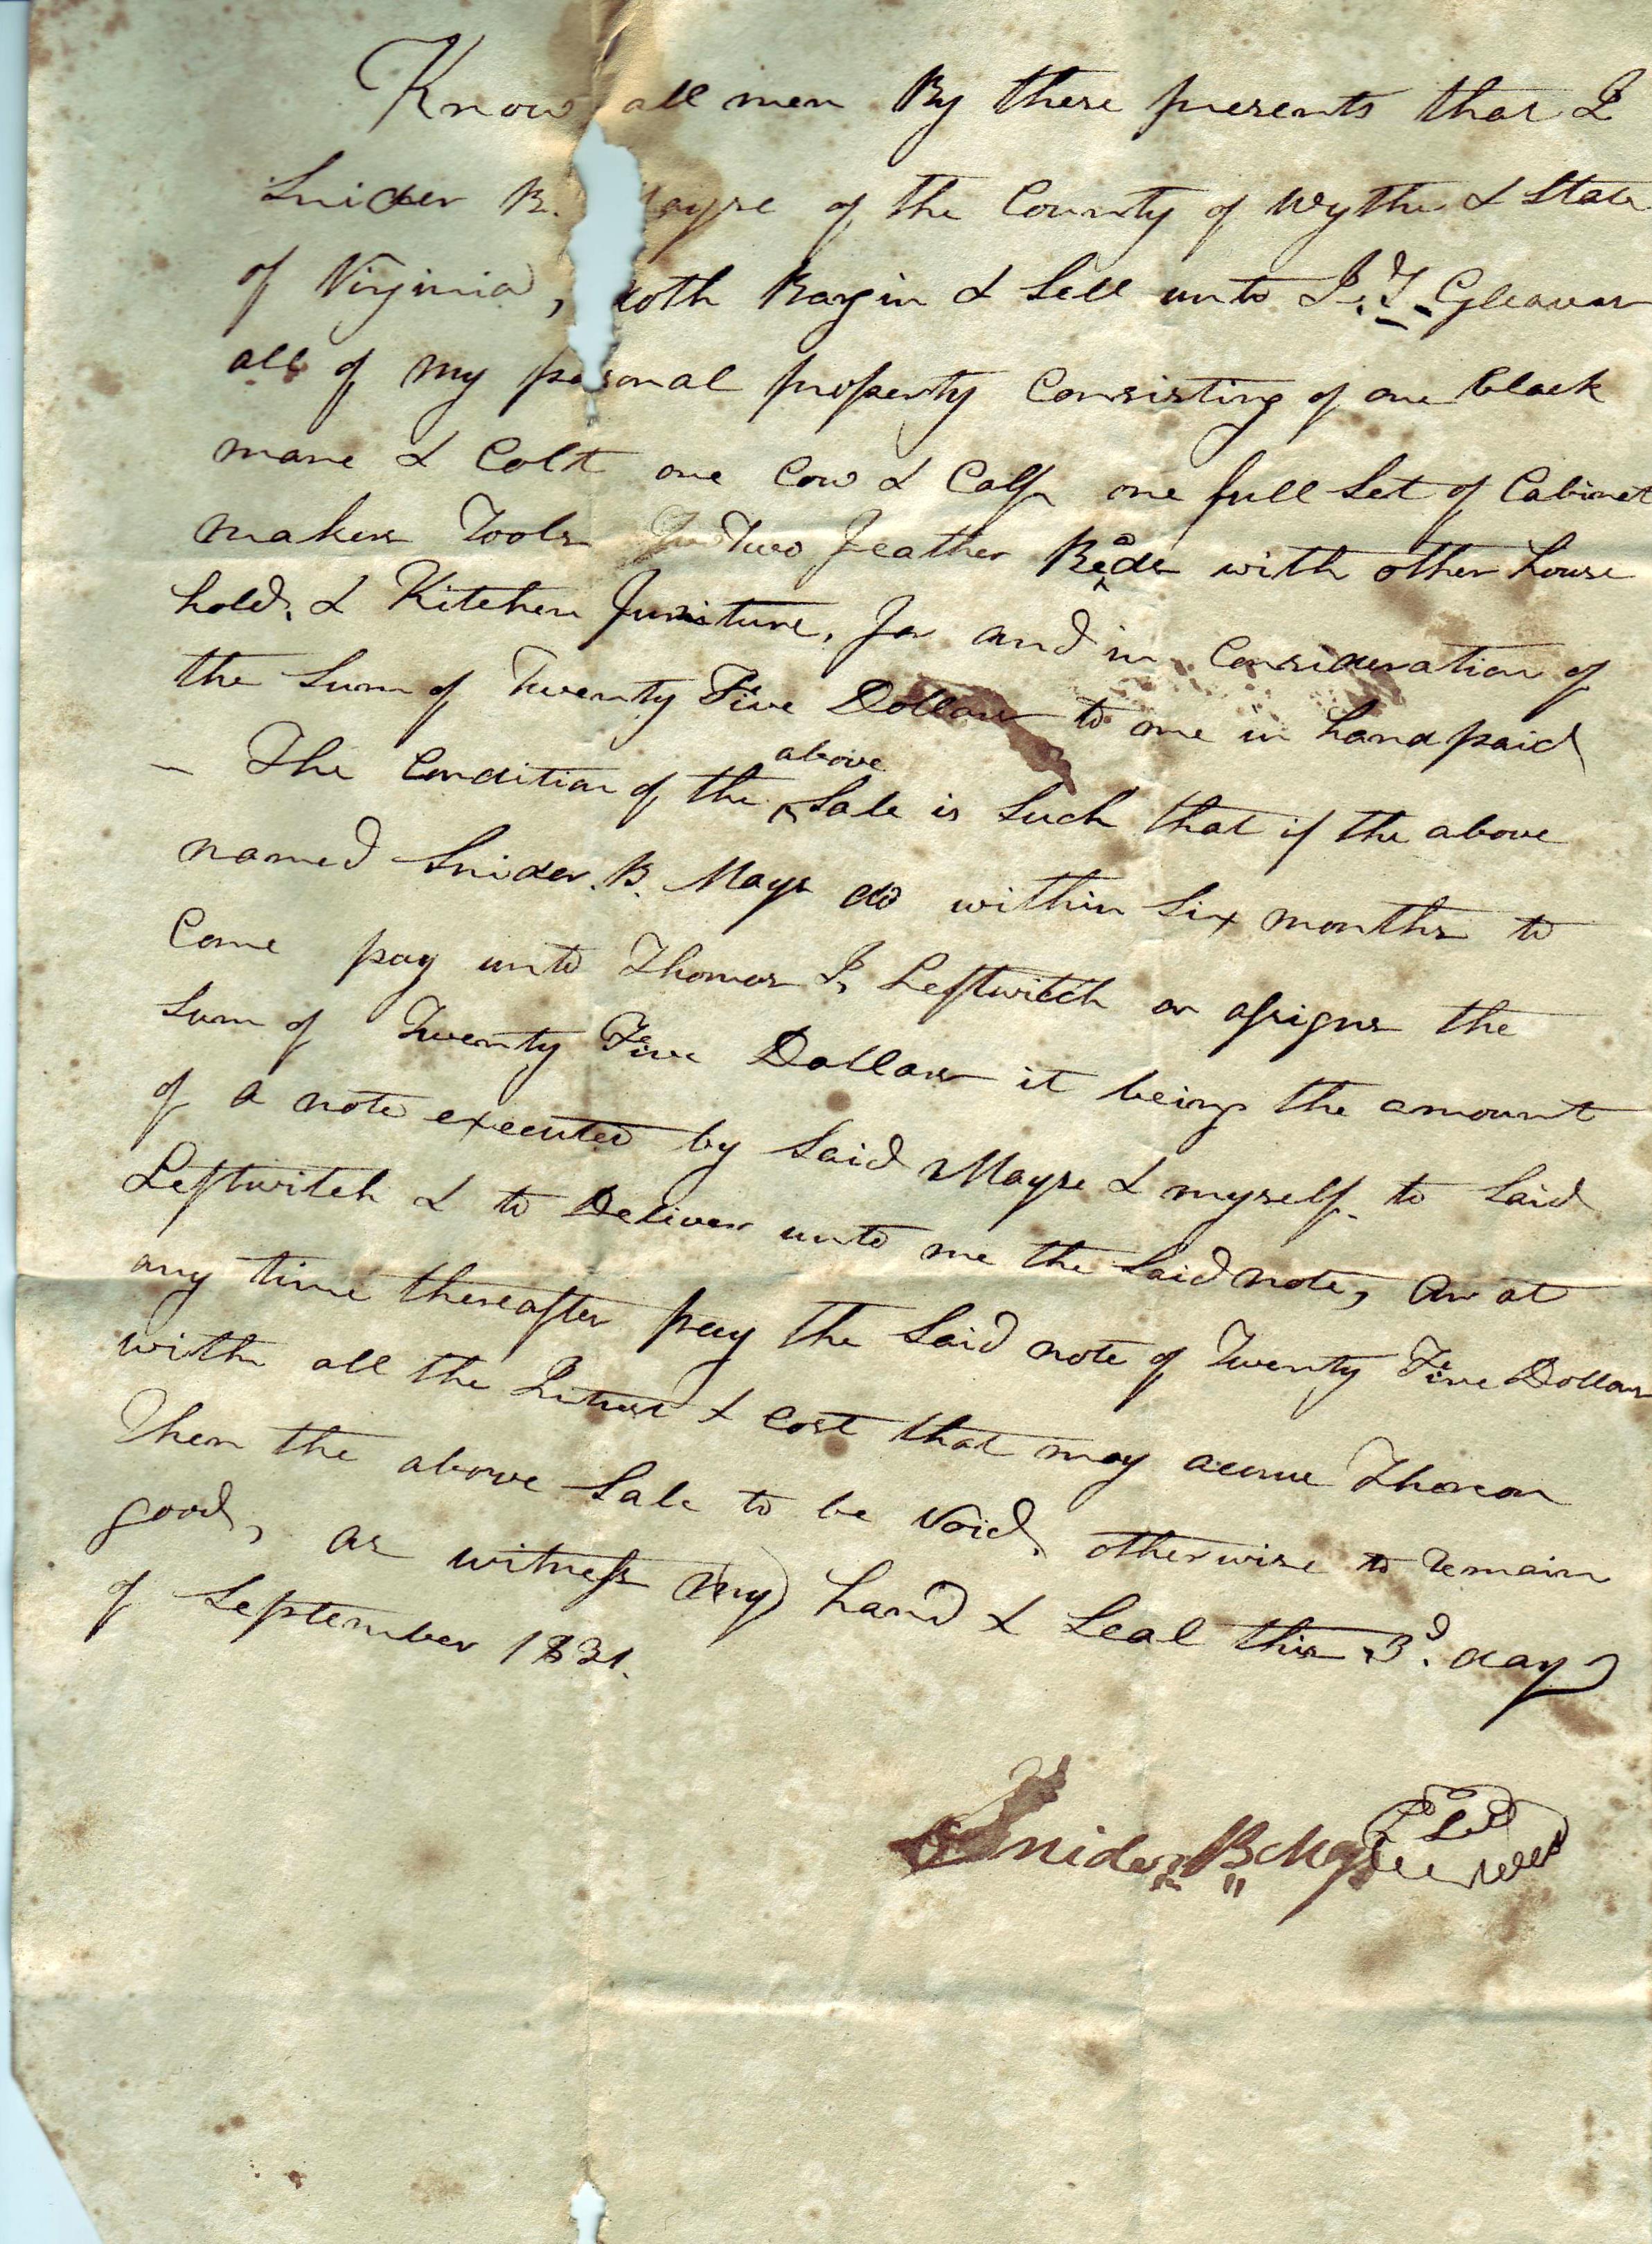 Know all men By these presents that I
Snider B. Mayse of the County of Wythe & State
of Virginia, doth Bargin & Sell unto J. T. Gleaves
all of my pesonal property Consisting of one black
mare & Colt one Cow & Calf one full Set of Cabinet
makers Tools Two feather Beads with other house
hold, & Kitchen furniture, for and in Consideration of
the Sum of Twenty Five Dollars to me in hand paid
– The Condition of the above Sale is Such that if the above
named Snider. B. Mays do within Six months to
Come pay unto Thomas J. Leftwitch or assigns the
Sum of Twenty Five Dollars it being the amount
of a note executed by Said Mayse & myself to Said
Leftwitch & to Deliver unto me the Said note, or at
any time thereafter pay the Said note of Twenty Five Dollars
with all the Intrest & Cost that may accrue Thereon
Then the above Sale to be Void, otherwise to remain
good, as witness my hand & Seal this 3d. day
of September 1831.
Snider B Mays